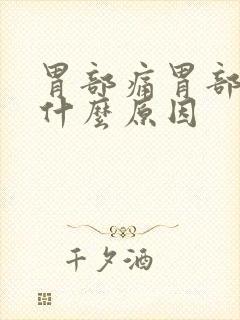 胃部痛胃部
什麼原因
千夕酒